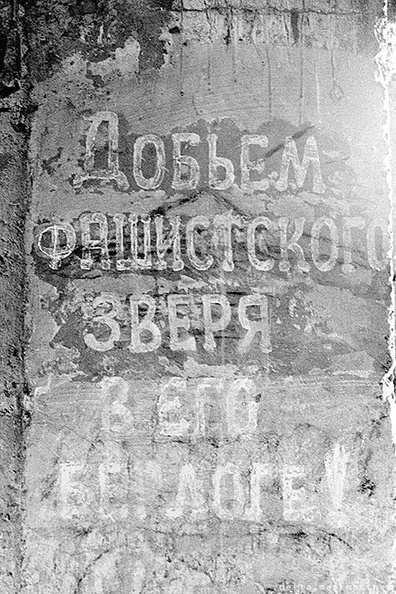 Добьем
фашистского
зверя
в его
берлоге!